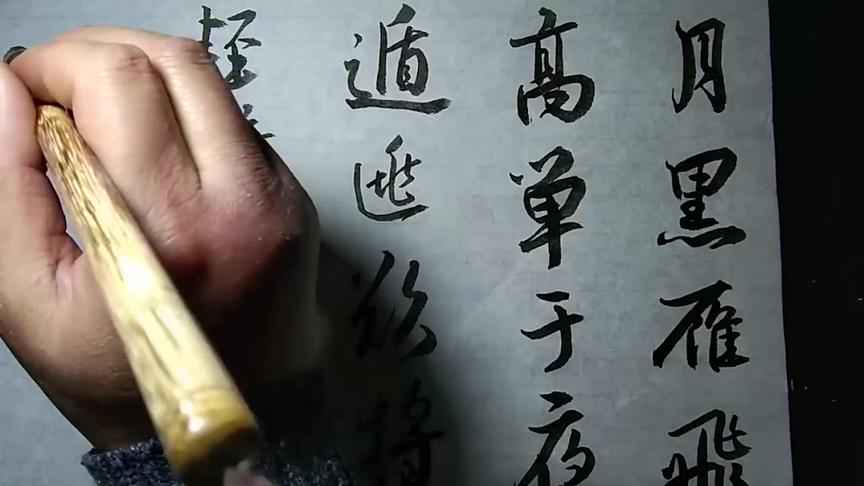 月黑雁飛
高单于夜
遁逃欲将
轻